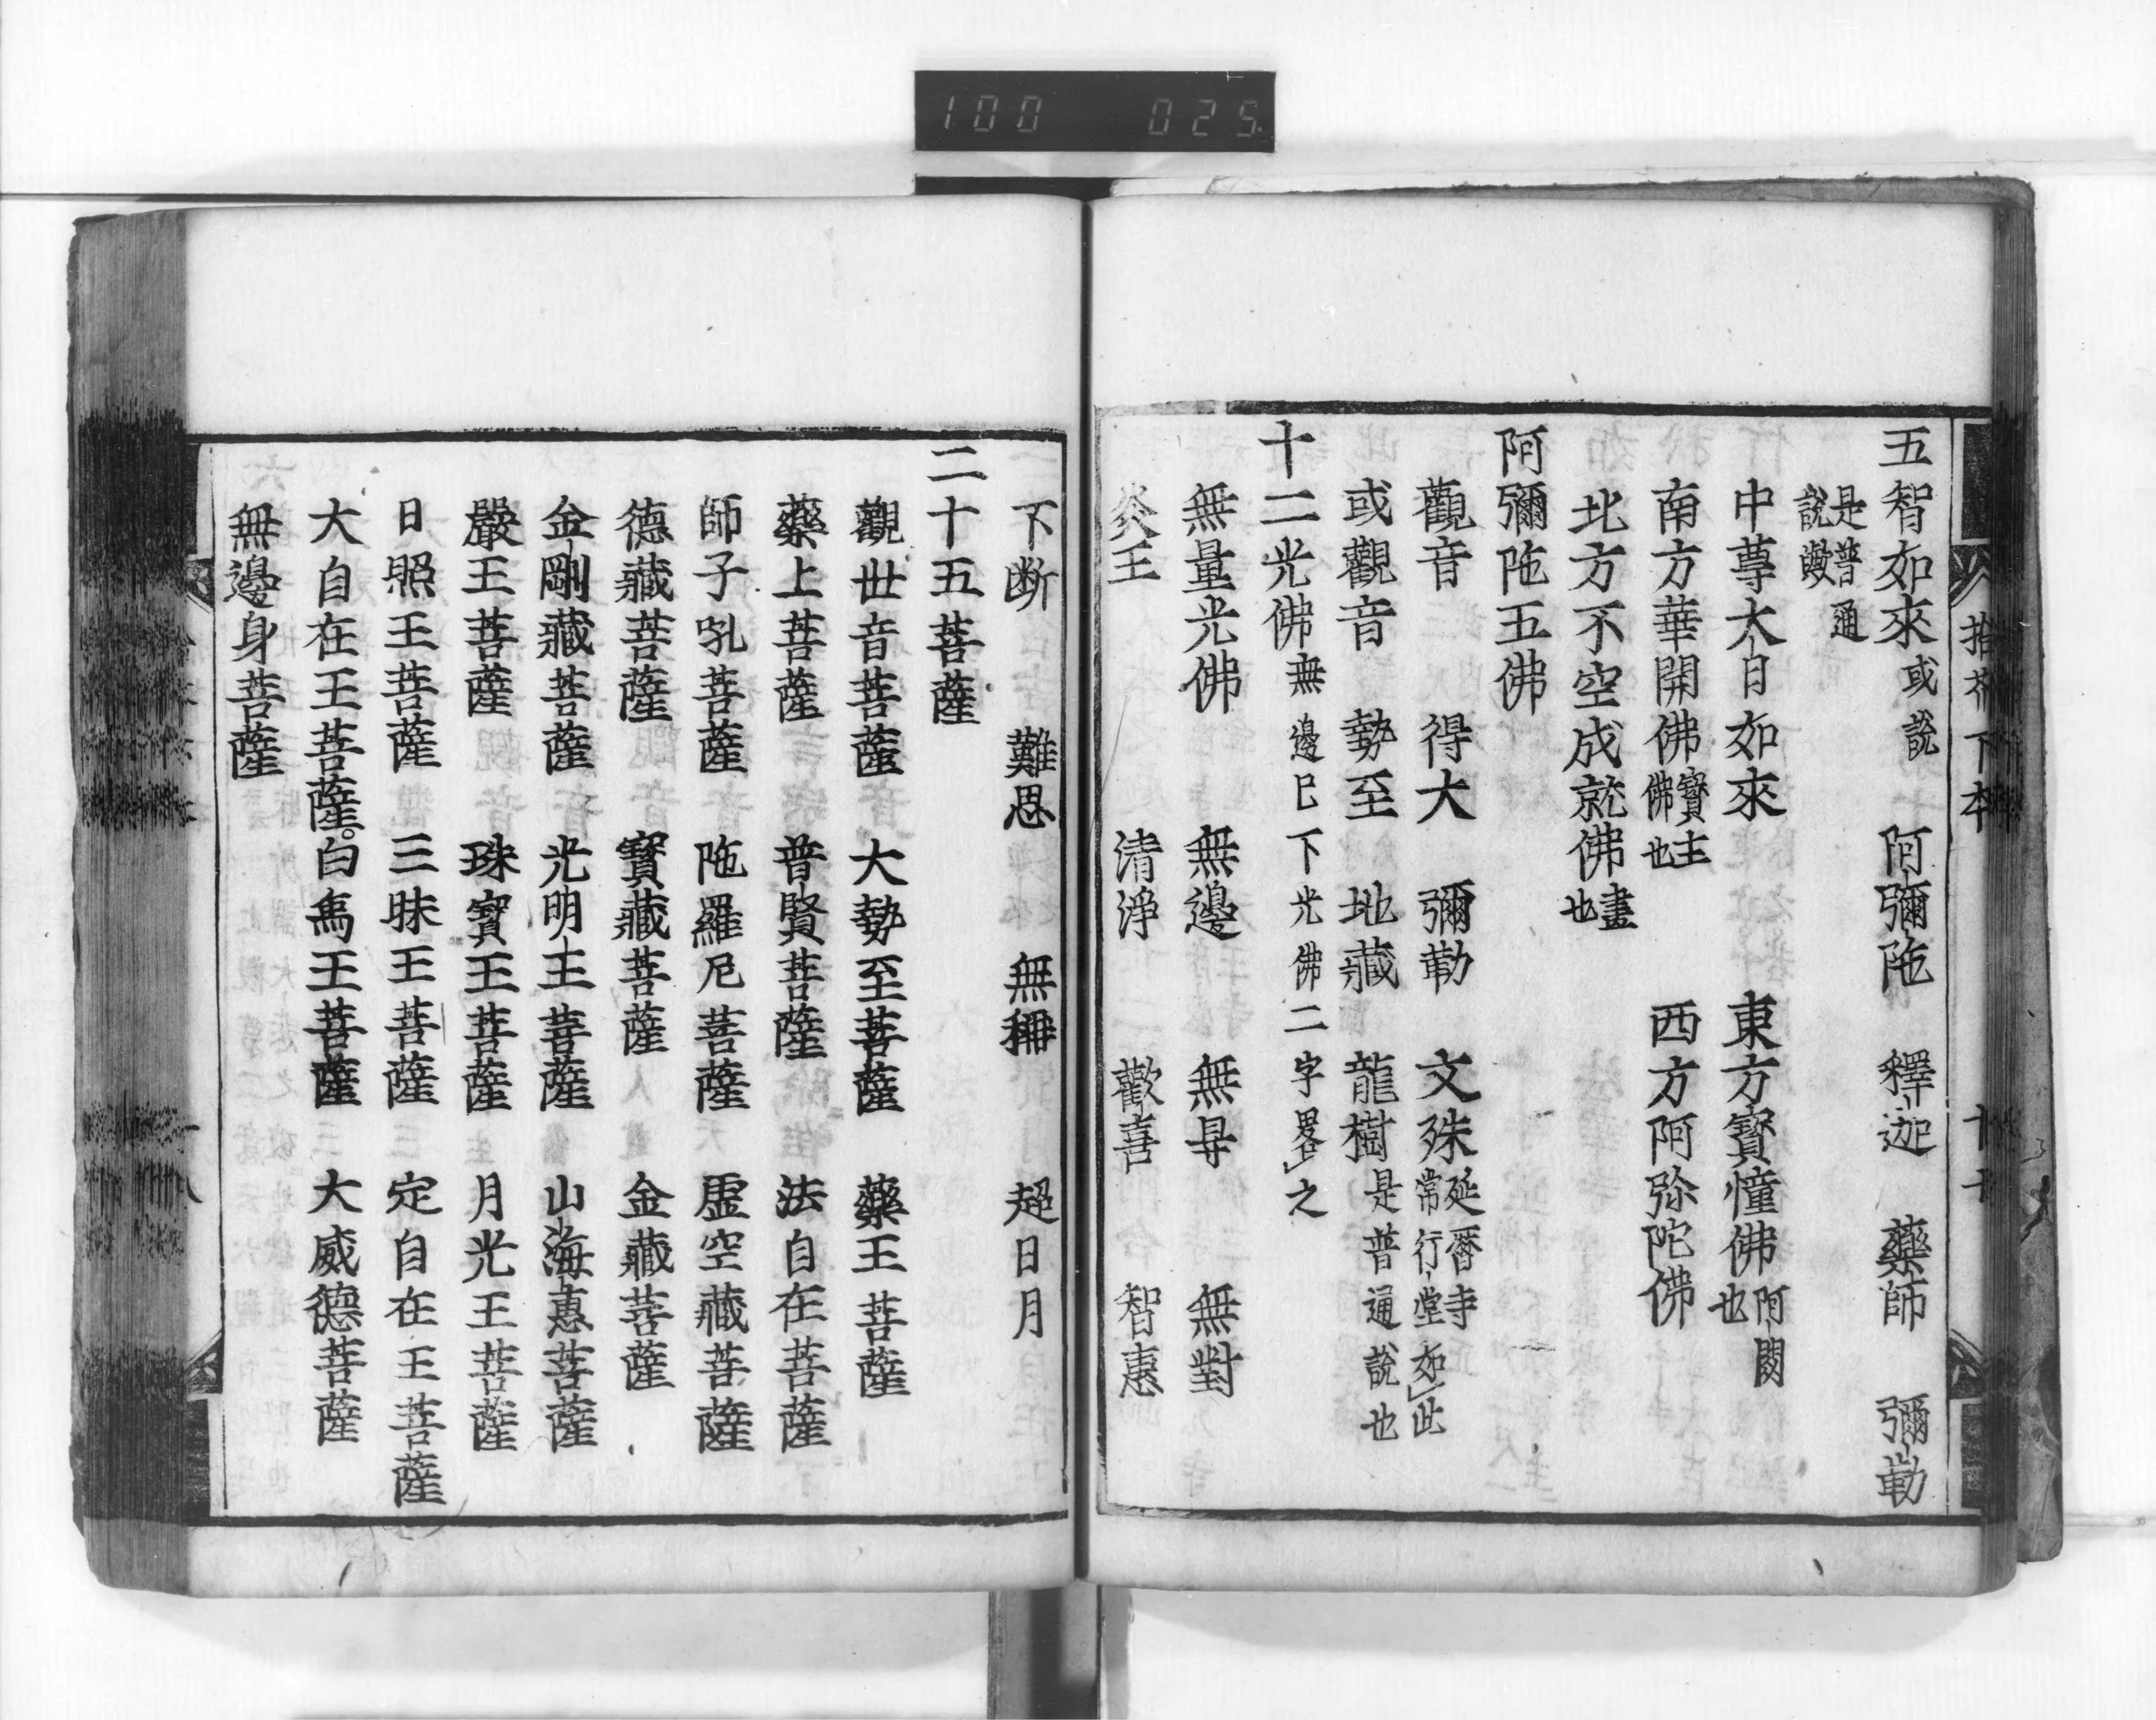 100 025
五智如來 或說 阿彌陁 釋迦 藥師 彌勒
是普通
說歟
中尊大日如來 東方寳憧佛 阿閦也
南方華開佛 寳主佛也 西方阿弥陀佛
北方不空成就佛 盡也
阿彌陁五佛
觀音 得大 彌勒 文殊 延曆寺常行堂如此
或觀音 勢至 地藏 龍樹 是普通說也
十二光佛 無邊已下光佛二字畧之
無量光佛 無邊 無㝵 無對
炎王 清淨 歡喜 智惠
下断 難思 無稱 超日月
二十五菩薩
觀世音菩薩 大勢至菩薩 藥王菩薩
藥上菩薩 普賢菩薩 法自在菩薩
師子吼菩薩 陁羅尼菩薩 虛空藏菩薩
德藏菩薩 寳藏菩薩 金藏菩薩
金剛藏菩薩 光明王菩薩 山海惠菩薩
嚴王菩薩 珠寳王菩薩 月光王菩薩
日照王菩薩 三昧王菩薩 定自在王菩薩
大自在王菩薩 白烏王菩薩 大威德菩薩
無邊身菩薩